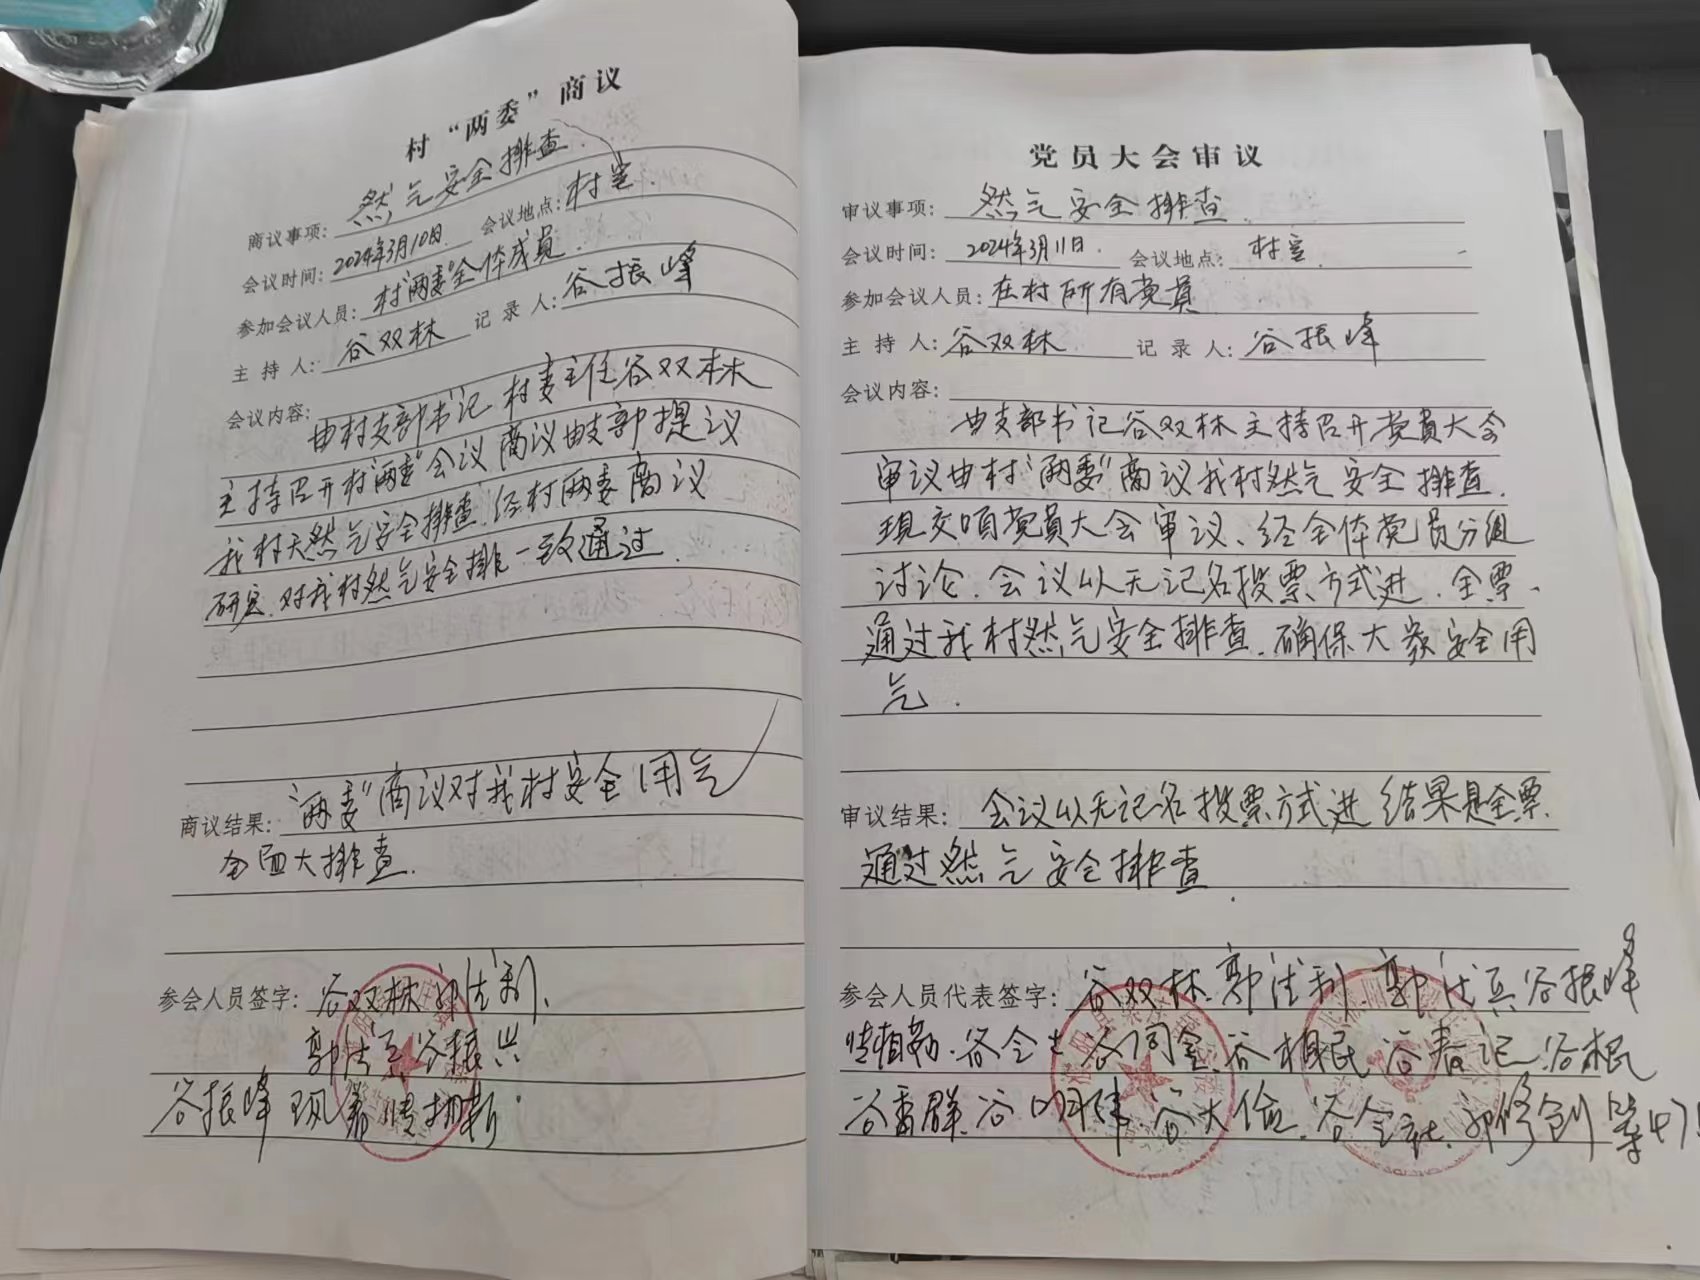 村“两委”商议
商议事项: 然气安全排查.
会议时间: 2024年3月10日. 会议地点: 村室.
参加会议人员: 村“两委”全体成员
主 持 人: 谷双林 记 录 人: 谷振峰
会议内容:
由村支部书记 村委主任谷双林
主持召开村“两委”会议 商议由支部提议
我村天然气安全排查. 经村两委商议
研究. 对我村然气安全排 一致通过.
商议结果: “两委”商议对我村安全用气
全面大排查.
参会人员签字: 谷双林 郭法利、
郭法兵 谷振兴
谷振峰
党员大会审议
审议事项: 然气安全排查.
会议时间: 2024年3月11日. 会议地点: 村室.
参加会议人员: 在村所有党员
主 持 人: 谷双林 记 录 人: 谷振峰
会议内容:
由支部书记谷双林主持召开党员大会
审议由村“两委”商议我村然气安全排查.
现交党员大会审议、经全体党员分组
讨论. 会议以无记名投票方式进. 全票.
通过我村然气安全排查. 确保大家安全用
气.
审议结果: 会议以无记名投票方式进 结果是全票.
通过然气安全排查.
参会人员代表签字: 谷双林. 郭法利. 郭法兵 谷振峰
谷相民 谷春记. 谷根
谷大俭. 谷全社. 郭修创 等47